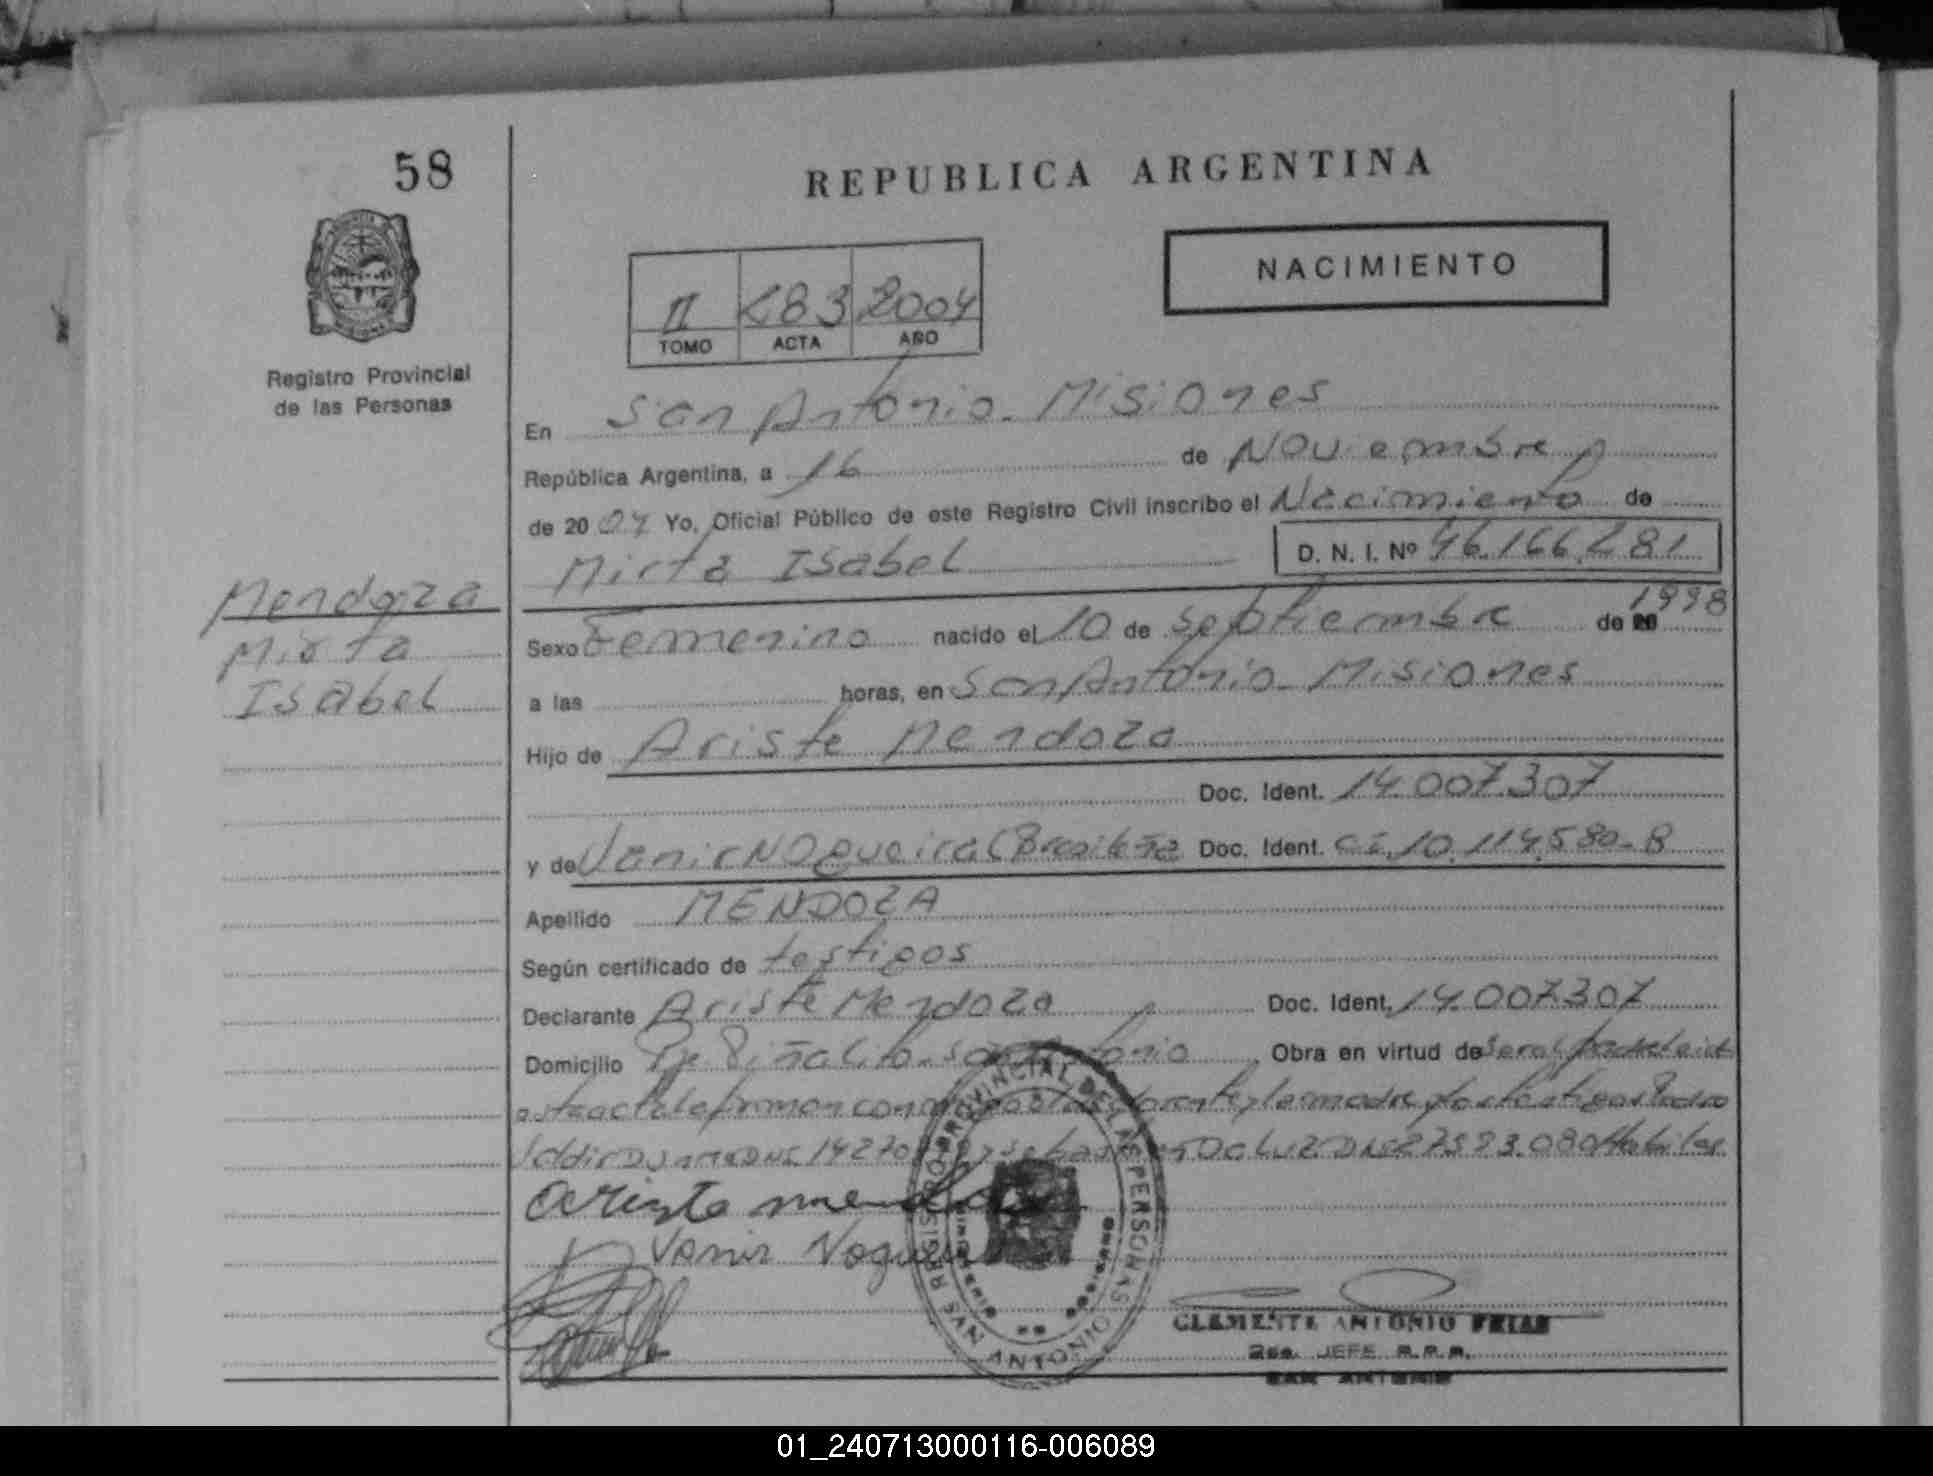 58
REPUBLICA ARGENTINA
NACIMIENTO
II 283 2004
TOMO ACTA AÑO
Registro Provincial
de las Personas
En San Antonio - Misiones
República Argentina, a 16 de Noviembre
de 2004 Yo, Oficial Público de este Registro Civil inscribo el Nacimiento de
Mirta Isabel D. N. I. Nº 46.166.281
Mendoza
Mirta
Isabel
Sexo Femenino nacido el 10 de Septiembre de 1998
a las horas, en San Antonio - Misiones
Hijo de Ariste Mendoza
Doc. Ident. 14.007.307
y de Vanir Nogueira (Brasileña Doc. Ident. CI. 10.114.580-8
Apellido MENDOZA
Según certificado de testigos
Declarante Ariste Mendoza Doc. Ident. 14.007.307
Domicilio San Antonio Obra en virtud de
firman la madre testigos Pedro
DNI
ariste mendoza
Vanir Nogueira
REGISTRO PROVINCIAL DE LAS PERSONAS
SAN ANTONIO
CLEMENTE ANTONIO FRIAS
JEFE R.P.P.
SAN ANTONIO
01_240713000116-006089